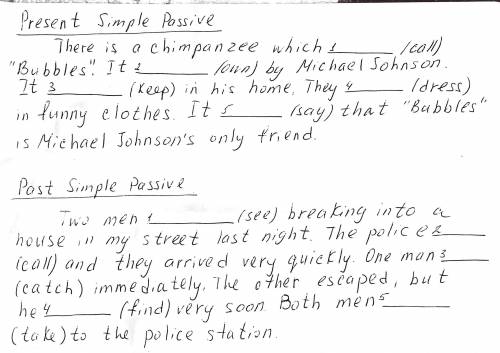 Present Simple Passive
There is a chimpanzee which 1______ (call)
"Bubbles". It 2______ (own) by Michael Johnson.
It 3______ (keep) in his home. They 4______ (dress)
in funny clothes. It 5______ (say) that "Bubbles"
is Michael Johnson's only friend.
Past Simple Passive
Two men 1______ (see) breaking into a
house in my street last night. The police 2______
(call) and they arrived very quickly. One man 3______
(catch) immediately. The other escaped, but
he 4______ (find) very soon. Both men 5______
(take) to the police station.